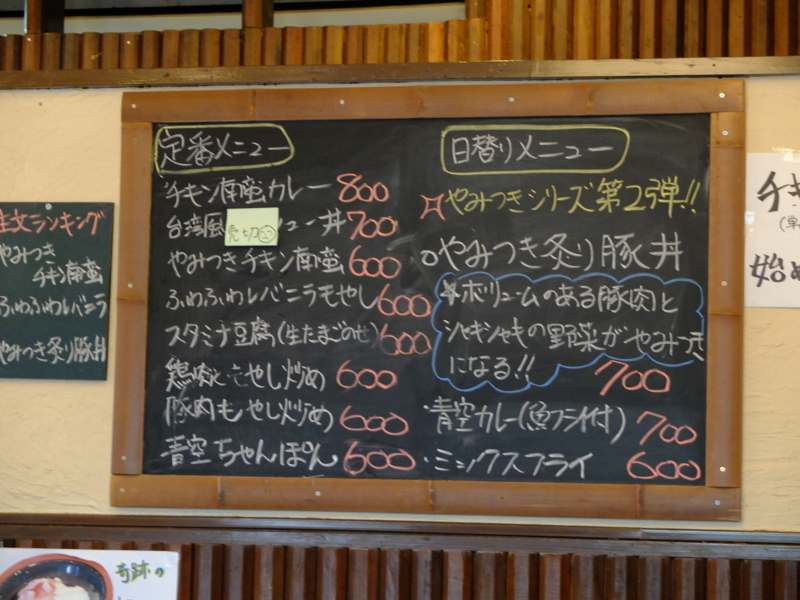 定番メニュー
チキン南蛮カレー 800
台湾風 売切 ュー丼 700
やみつきチキン南蛮 600
ふわふわレバニラもやし 600
スタミナ豆腐(生たまごのせ) 600
鶏肉ともやし炒め 600
豚肉もやし炒め 600
青空ちゃんぽん 600
日替りメニュー
やみつきシリーズ第2弾!!
やみつき炙り豚丼
ボリュームのある豚肉と
シャキシャキの野菜がやみつき
になる!!
700
・青空カレー(魚フライ付) 700
・ミックスフライ 600
注文ランキング
やみつき
チキン南蛮
ふわふわレバニラ
やみつき炙り豚丼
チキ
始め
奇跡の